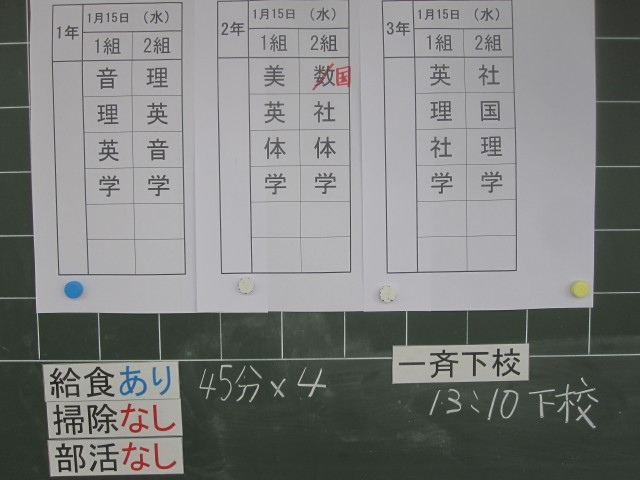 1年 1月15日 （水）
1組 2組
音 理
理 英
英 音
学 学
2年 1月15日 （水）
1組 2組
美 数 国
英 社
体 体
学 学
3年 1月15日 （水）
1組 2組
英 社
理 国
社 理
学 学
給食あり
掃除なし
部活なし
45分×4
一斉下校
13:10下校